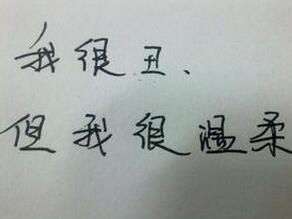 我很丑、
但我很温柔